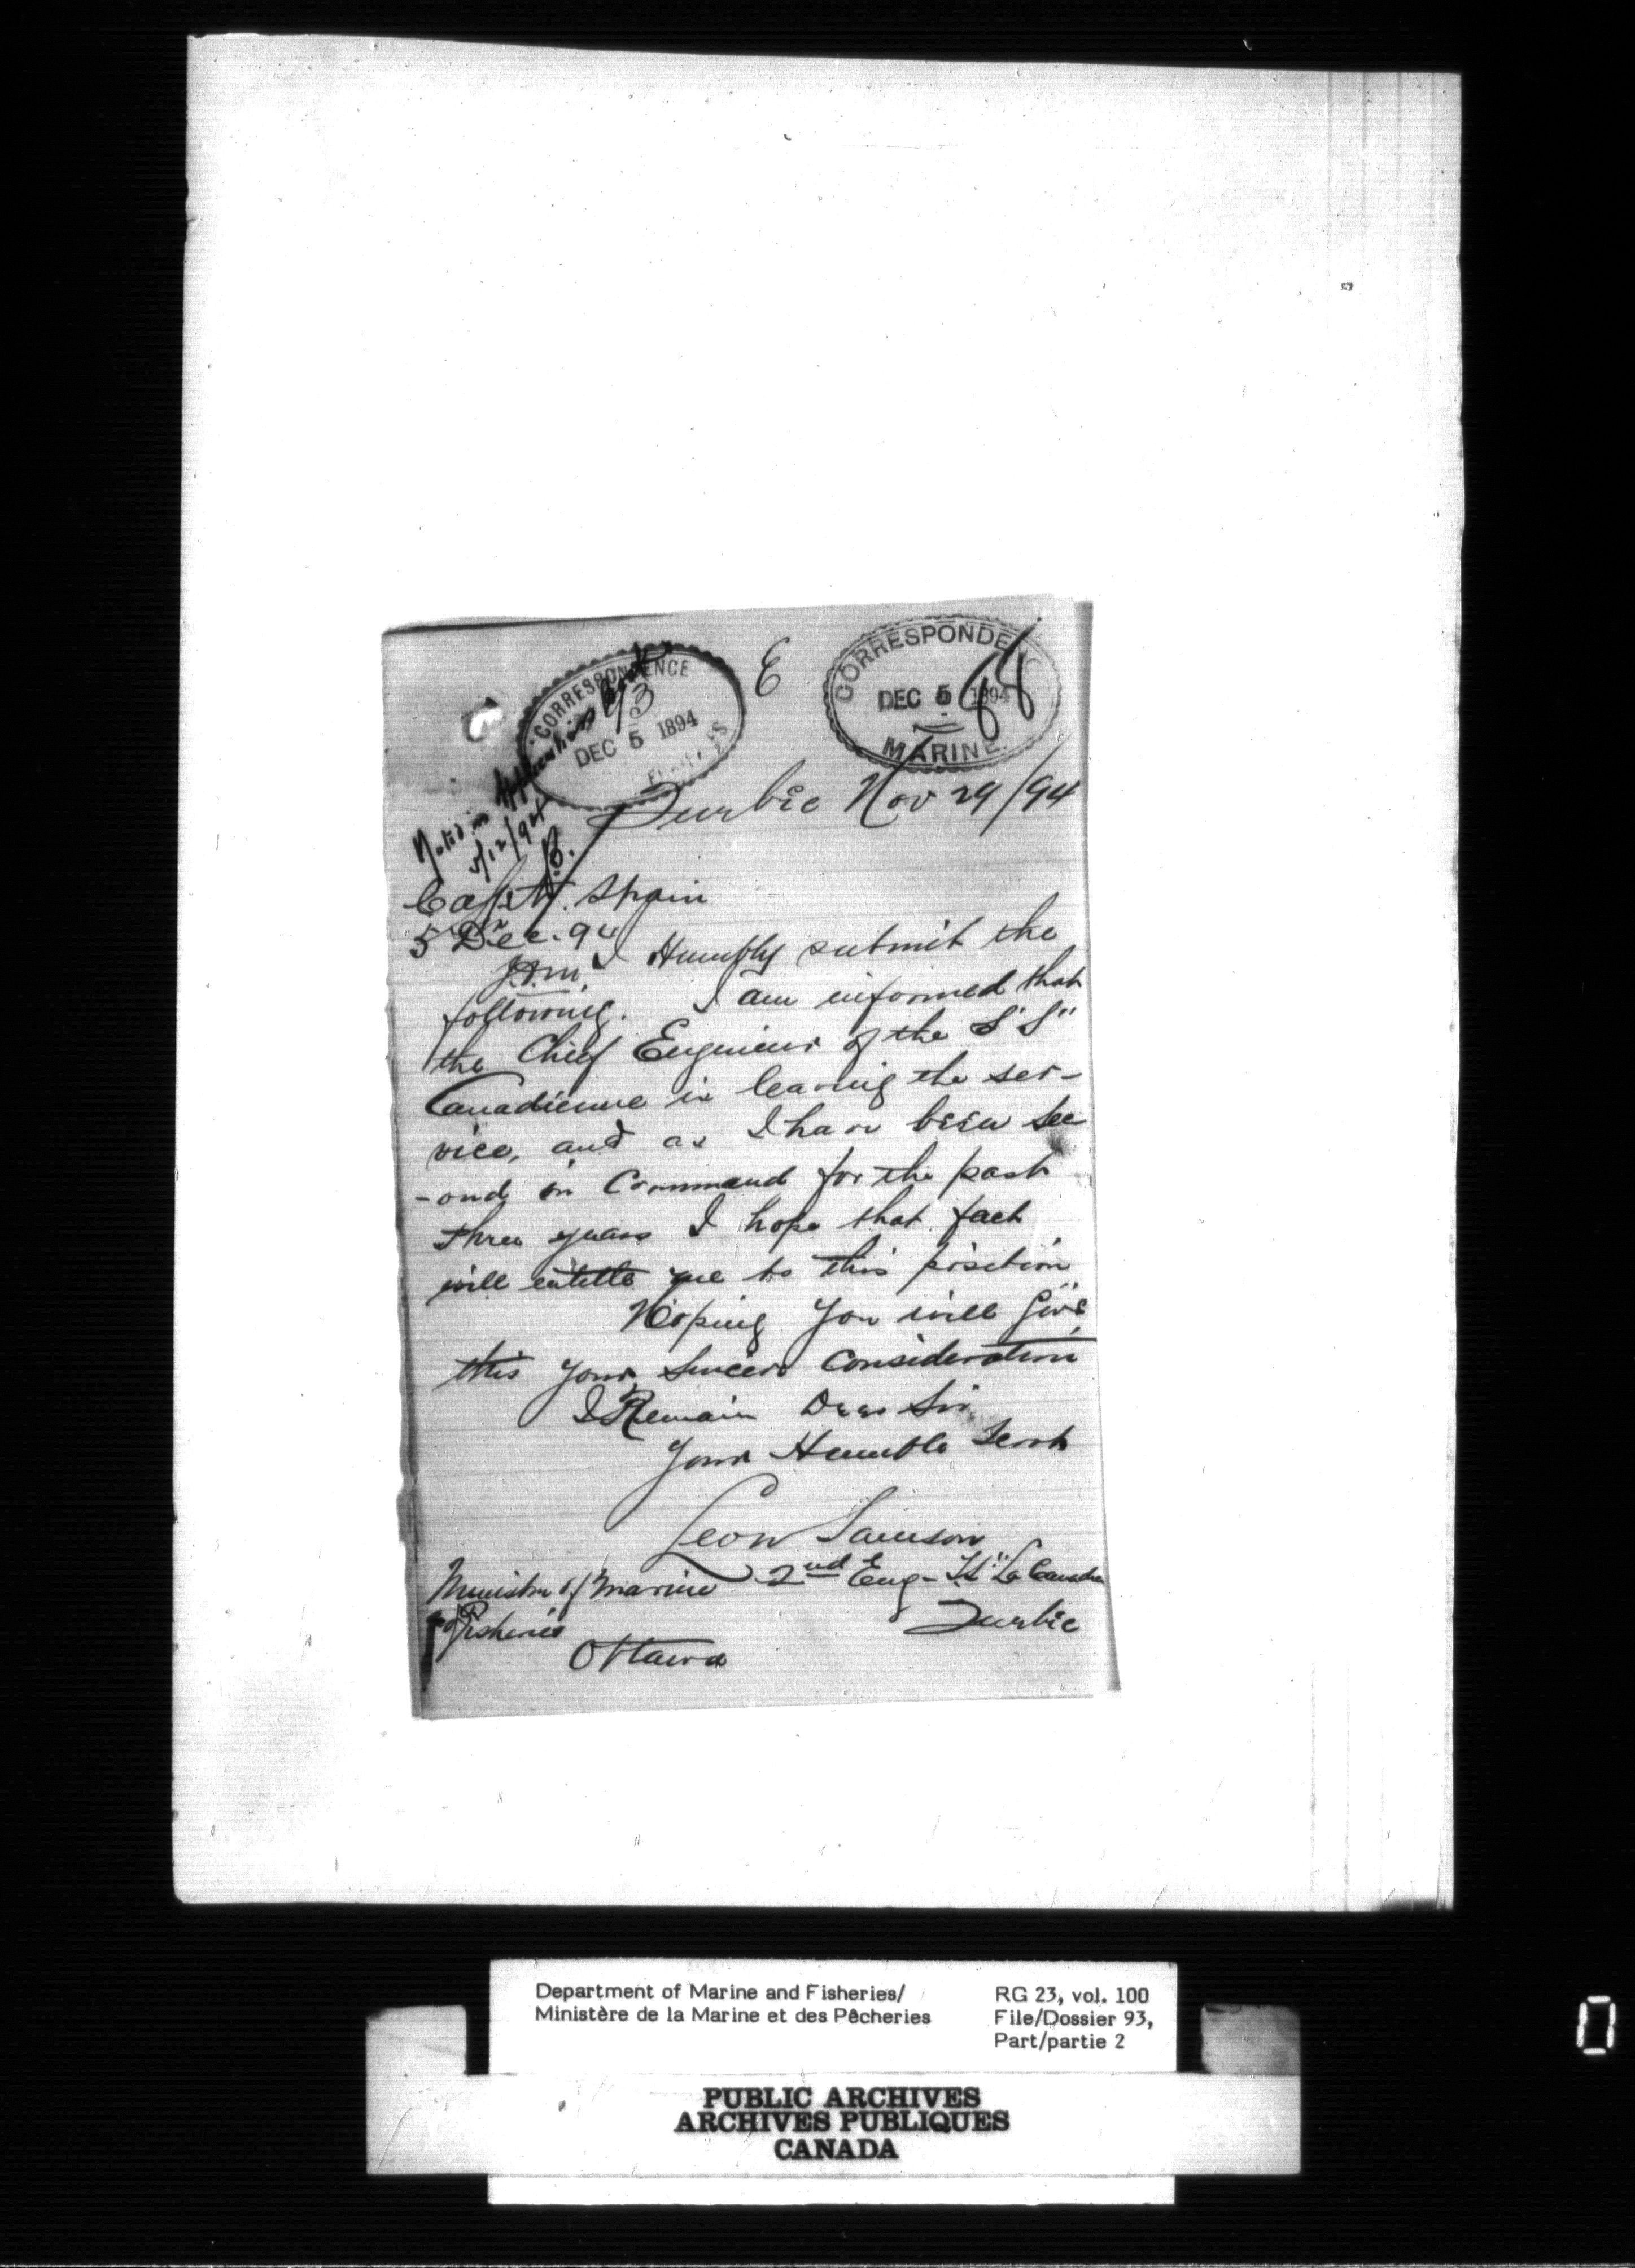 CORRESPONDENCE
DEC 5 1894
E
CORRESPONDE
DEC 5 1894
MARINE
68
Noted in
5/12/94
Quebec Nov 29/94
Capt. Spain
5 Dec. 94
I Humbly submit the
following. I am informed that
the Chief Engineer of the S "S"
Canadienne is leaving the ser-
vice, and as I have been sec
-ond in Command for the past
three years I hope that fact
will entitle me to this position
Hoping you will give
this your sincere consideration
I Remain Dear Sir
Your Humble Servt
Leon Samson
2nd Eng- SS "La Canadi
Quebec
Minister of Marine
Fisheries
Ottawa
Department of Marine and Fisheries/
Ministère de la Marine et des Pêcheries
RG 23, vol. 100
File/Dossier 93,
Part/partie 2
PUBLIC ARCHIVES
ARCHIVES PUBLIQUES
CANADA